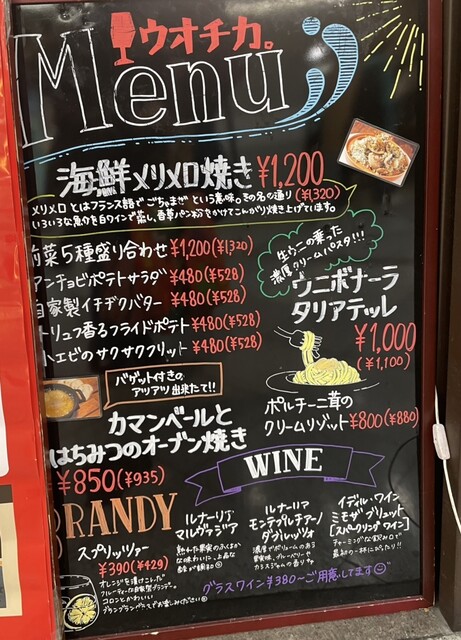 ウオチカ。
Menu
海鮮メリメロ焼き ¥1,200
(¥1,320)
メリメロ とはフランス語で ごちゃまぜ という意味。その名の通り
いろいろな魚介を白ワインで蒸し、香草パン粉をかけてこんがり焼き上げています。
前菜5種盛り合わせ ¥1,200(¥1,320)
アンチョビポテトサラダ ¥480(¥528)
自家製イチヂクバター ¥480(¥528)
トリュフ香るフライドポテト ¥480(¥528)
エビのサクサクフリット ¥480(¥528)
生ウニの乗った
濃厚クリームパスタ!!!
ウニボナーラ
タリアテッレ
¥1,000
(¥1,100)
バゲット付きの
アツアツ出来たて!!
カマンベールと
はちみつのオーブン焼き
¥850(¥935)
ポルチーニ茸の
クリームリゾット ¥800(¥880)
WINE
BRANDY
スプリッツァー
¥390(¥429)
オレンジを漬けこんだ
フルーティーな自家製ブランデー。
コロンとかわいい
グランプラングラスでお楽しみください
マルヴァジア
ルナーリア
モンテプルチアーノ
ダブルッツォ
イディル・ワイン
ミモザ ブリュット
[スパークリング ワイン]
チャーミングな飲み口で
最初の一杯にぴったり!!
グラスワイン ¥380〜ご用意してます